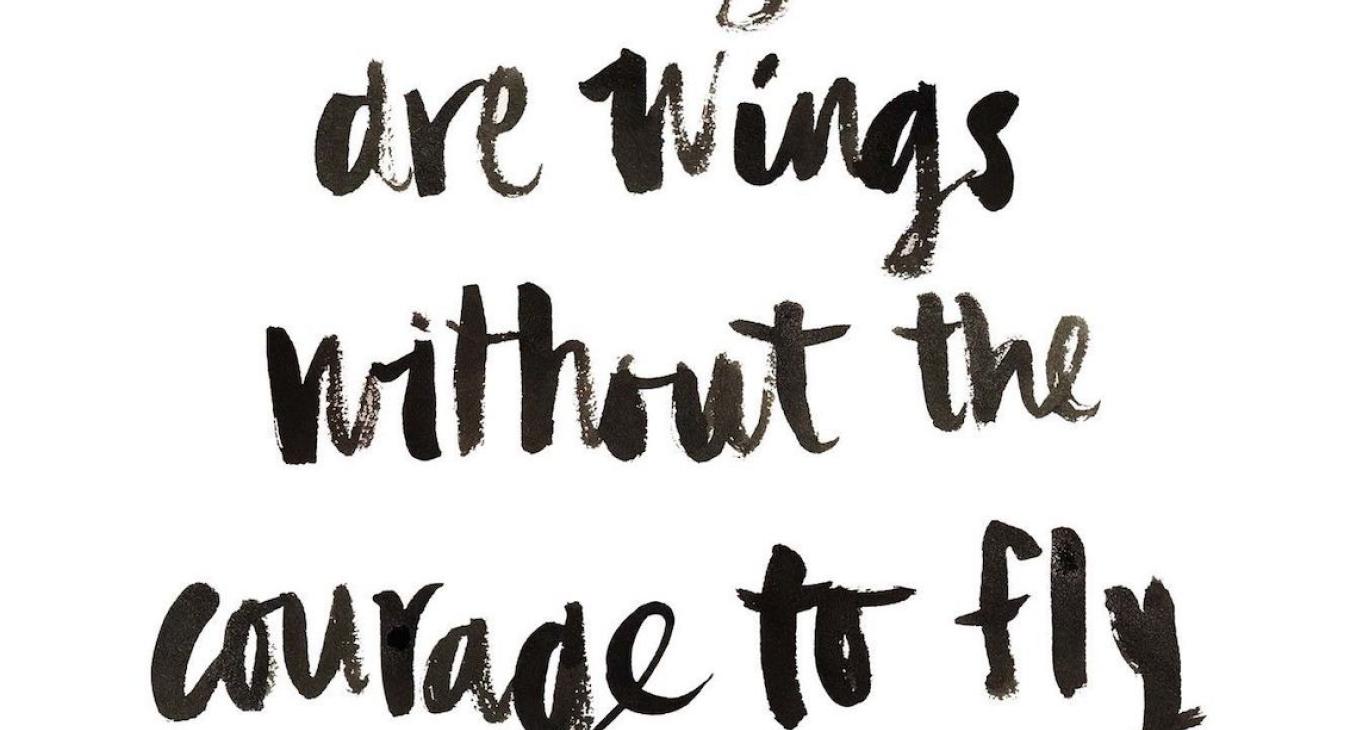 are wings
without the
courage to fly